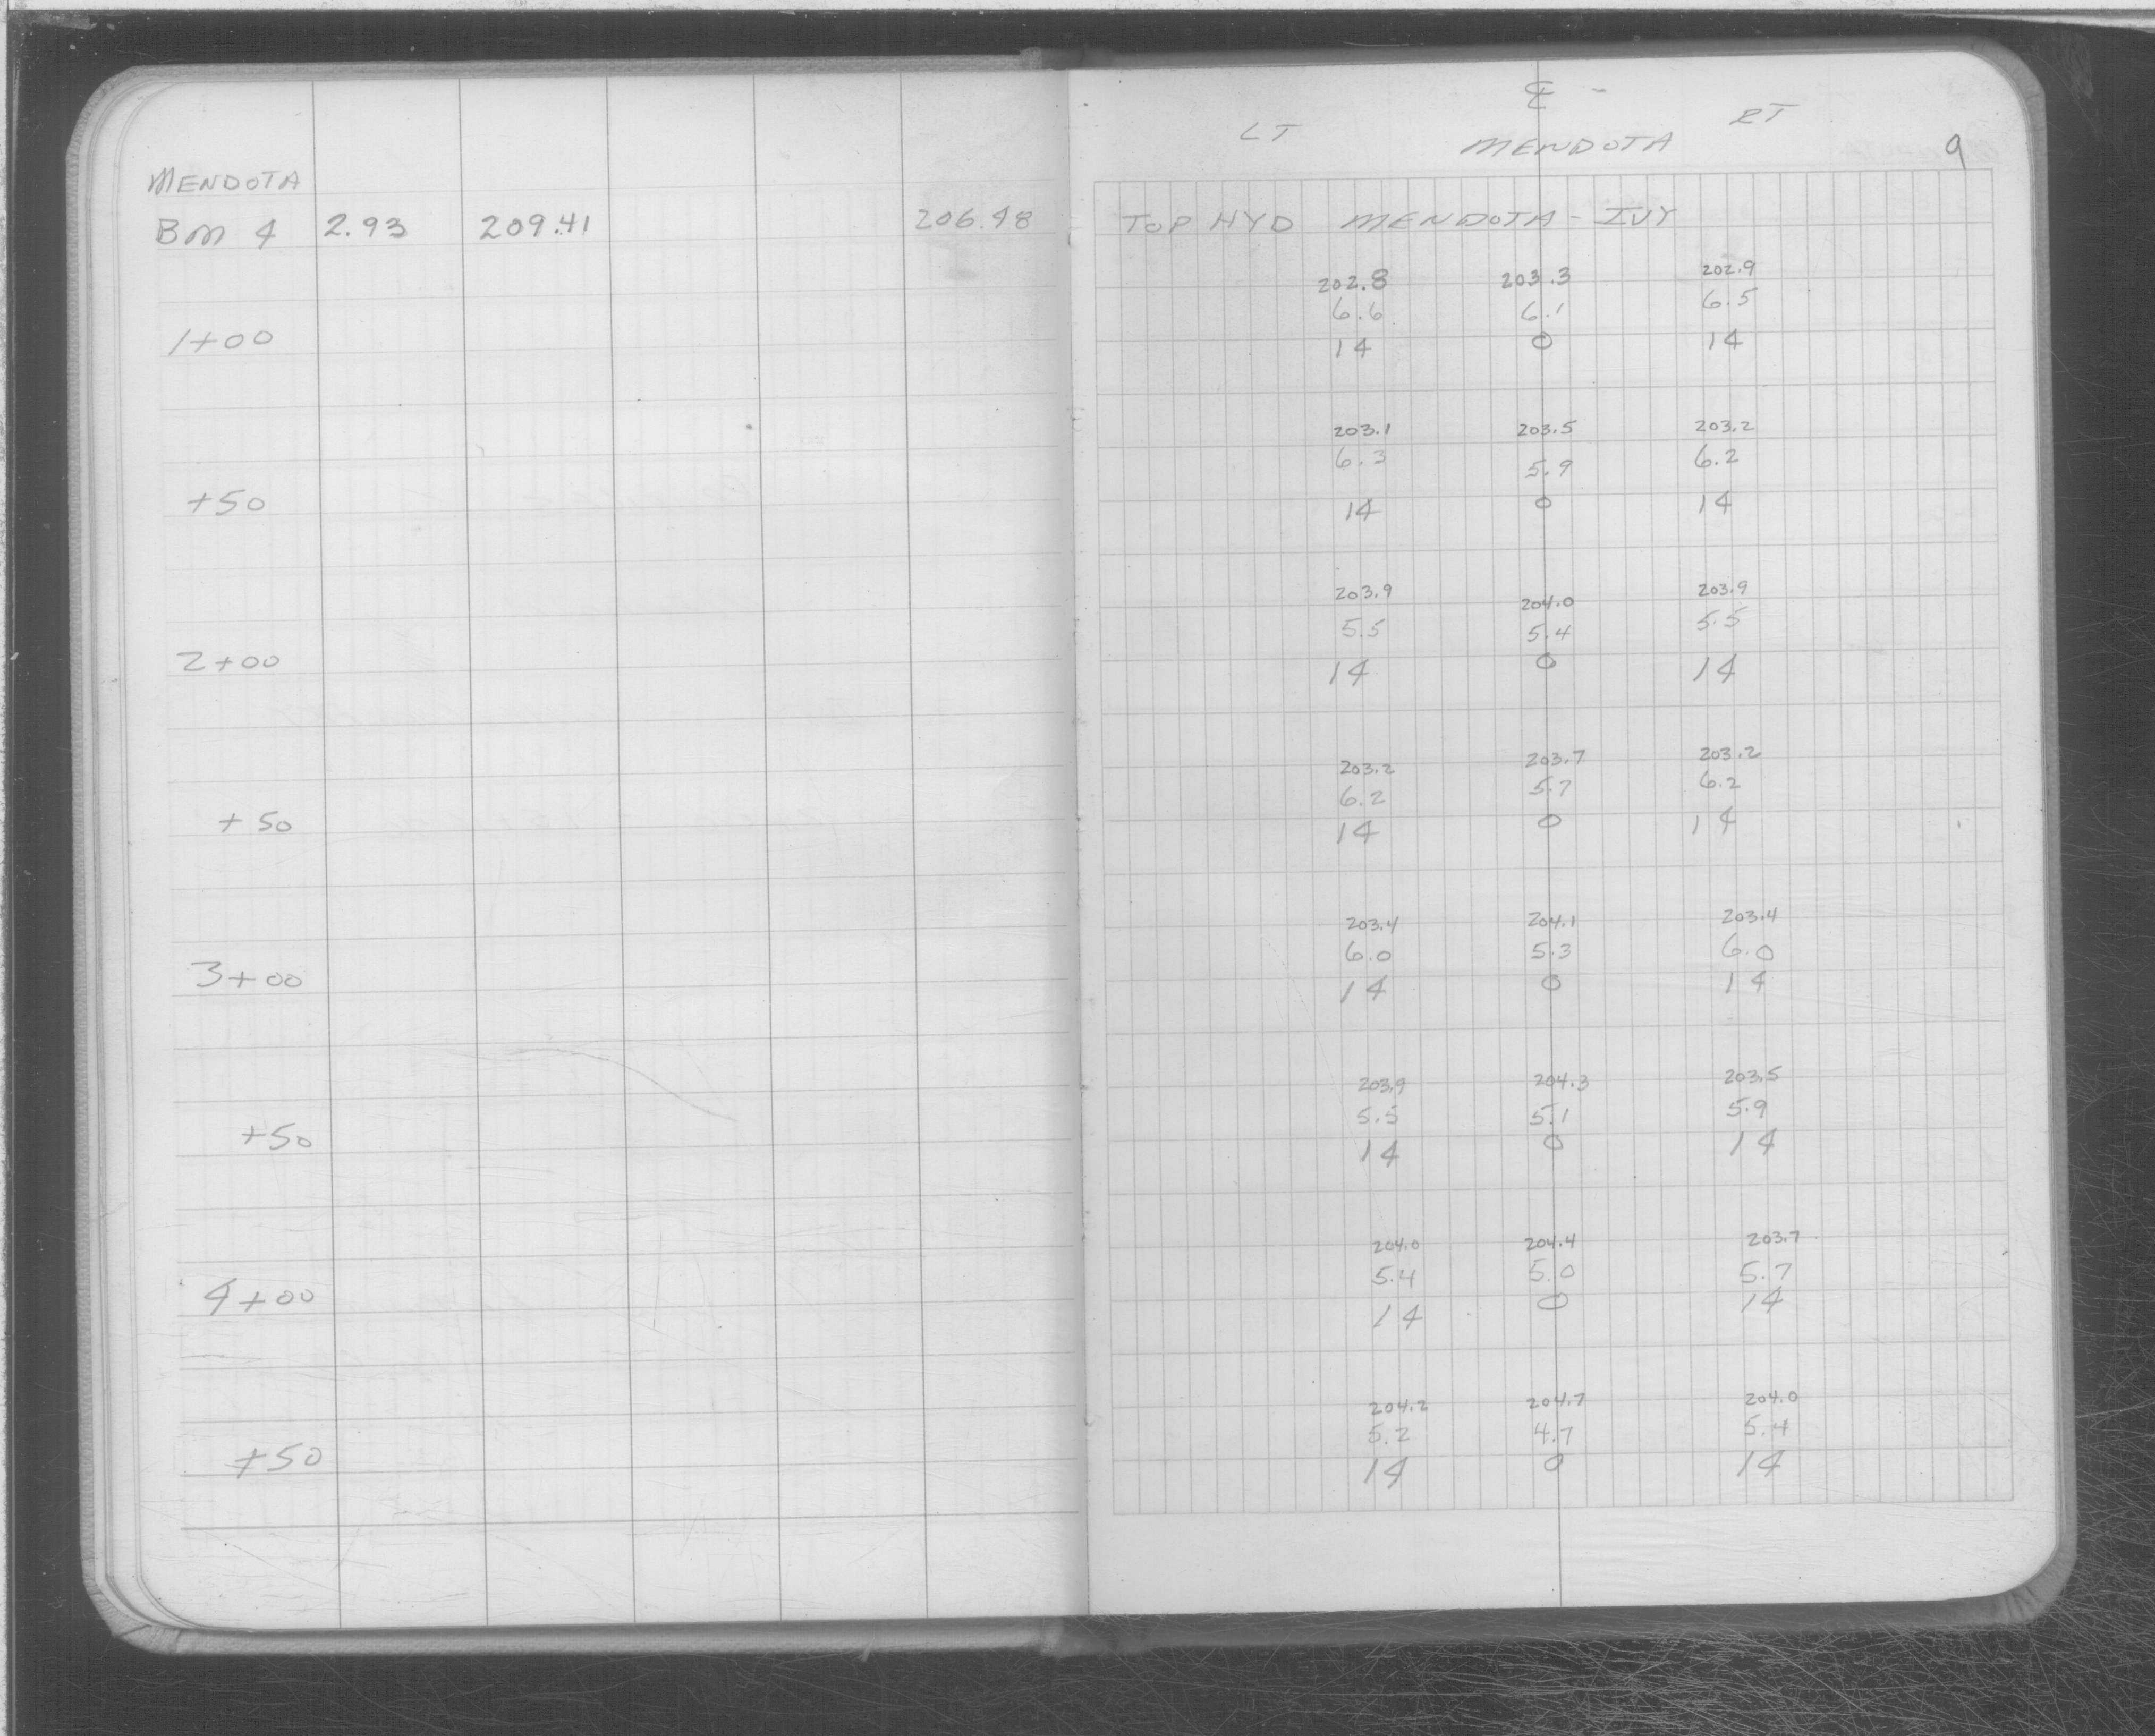 MENDOTA
BM 4 2.93 209.41 206.48
1+00
+50
2+00
+50
3+00
+50
4+00
+50
℄
LT RT
MENDOTA 9
TOP HYD MENDOTA - IVY
202.8 203.3 202.9
6.6 6.1 6.5
14 0 14
203.1 203.5 203.2
6.3 5.9 6.2
14 0 14
203.9 204.0 203.9
5.5 5.4 5.5
14 0 14
203.2 203.7 203.2
6.2 5.7 6.2
14 0 14
203.4 204.1 203.4
6.0 5.3 6.0
14 0 14
203.9 204.3 203.5
5.5 5.1 5.9
14 0 14
204.0 204.4 203.7
5.4 5.0 5.7
14 0 14
204.2 204.7 204.0
5.2 4.7 5.4
14 0 14